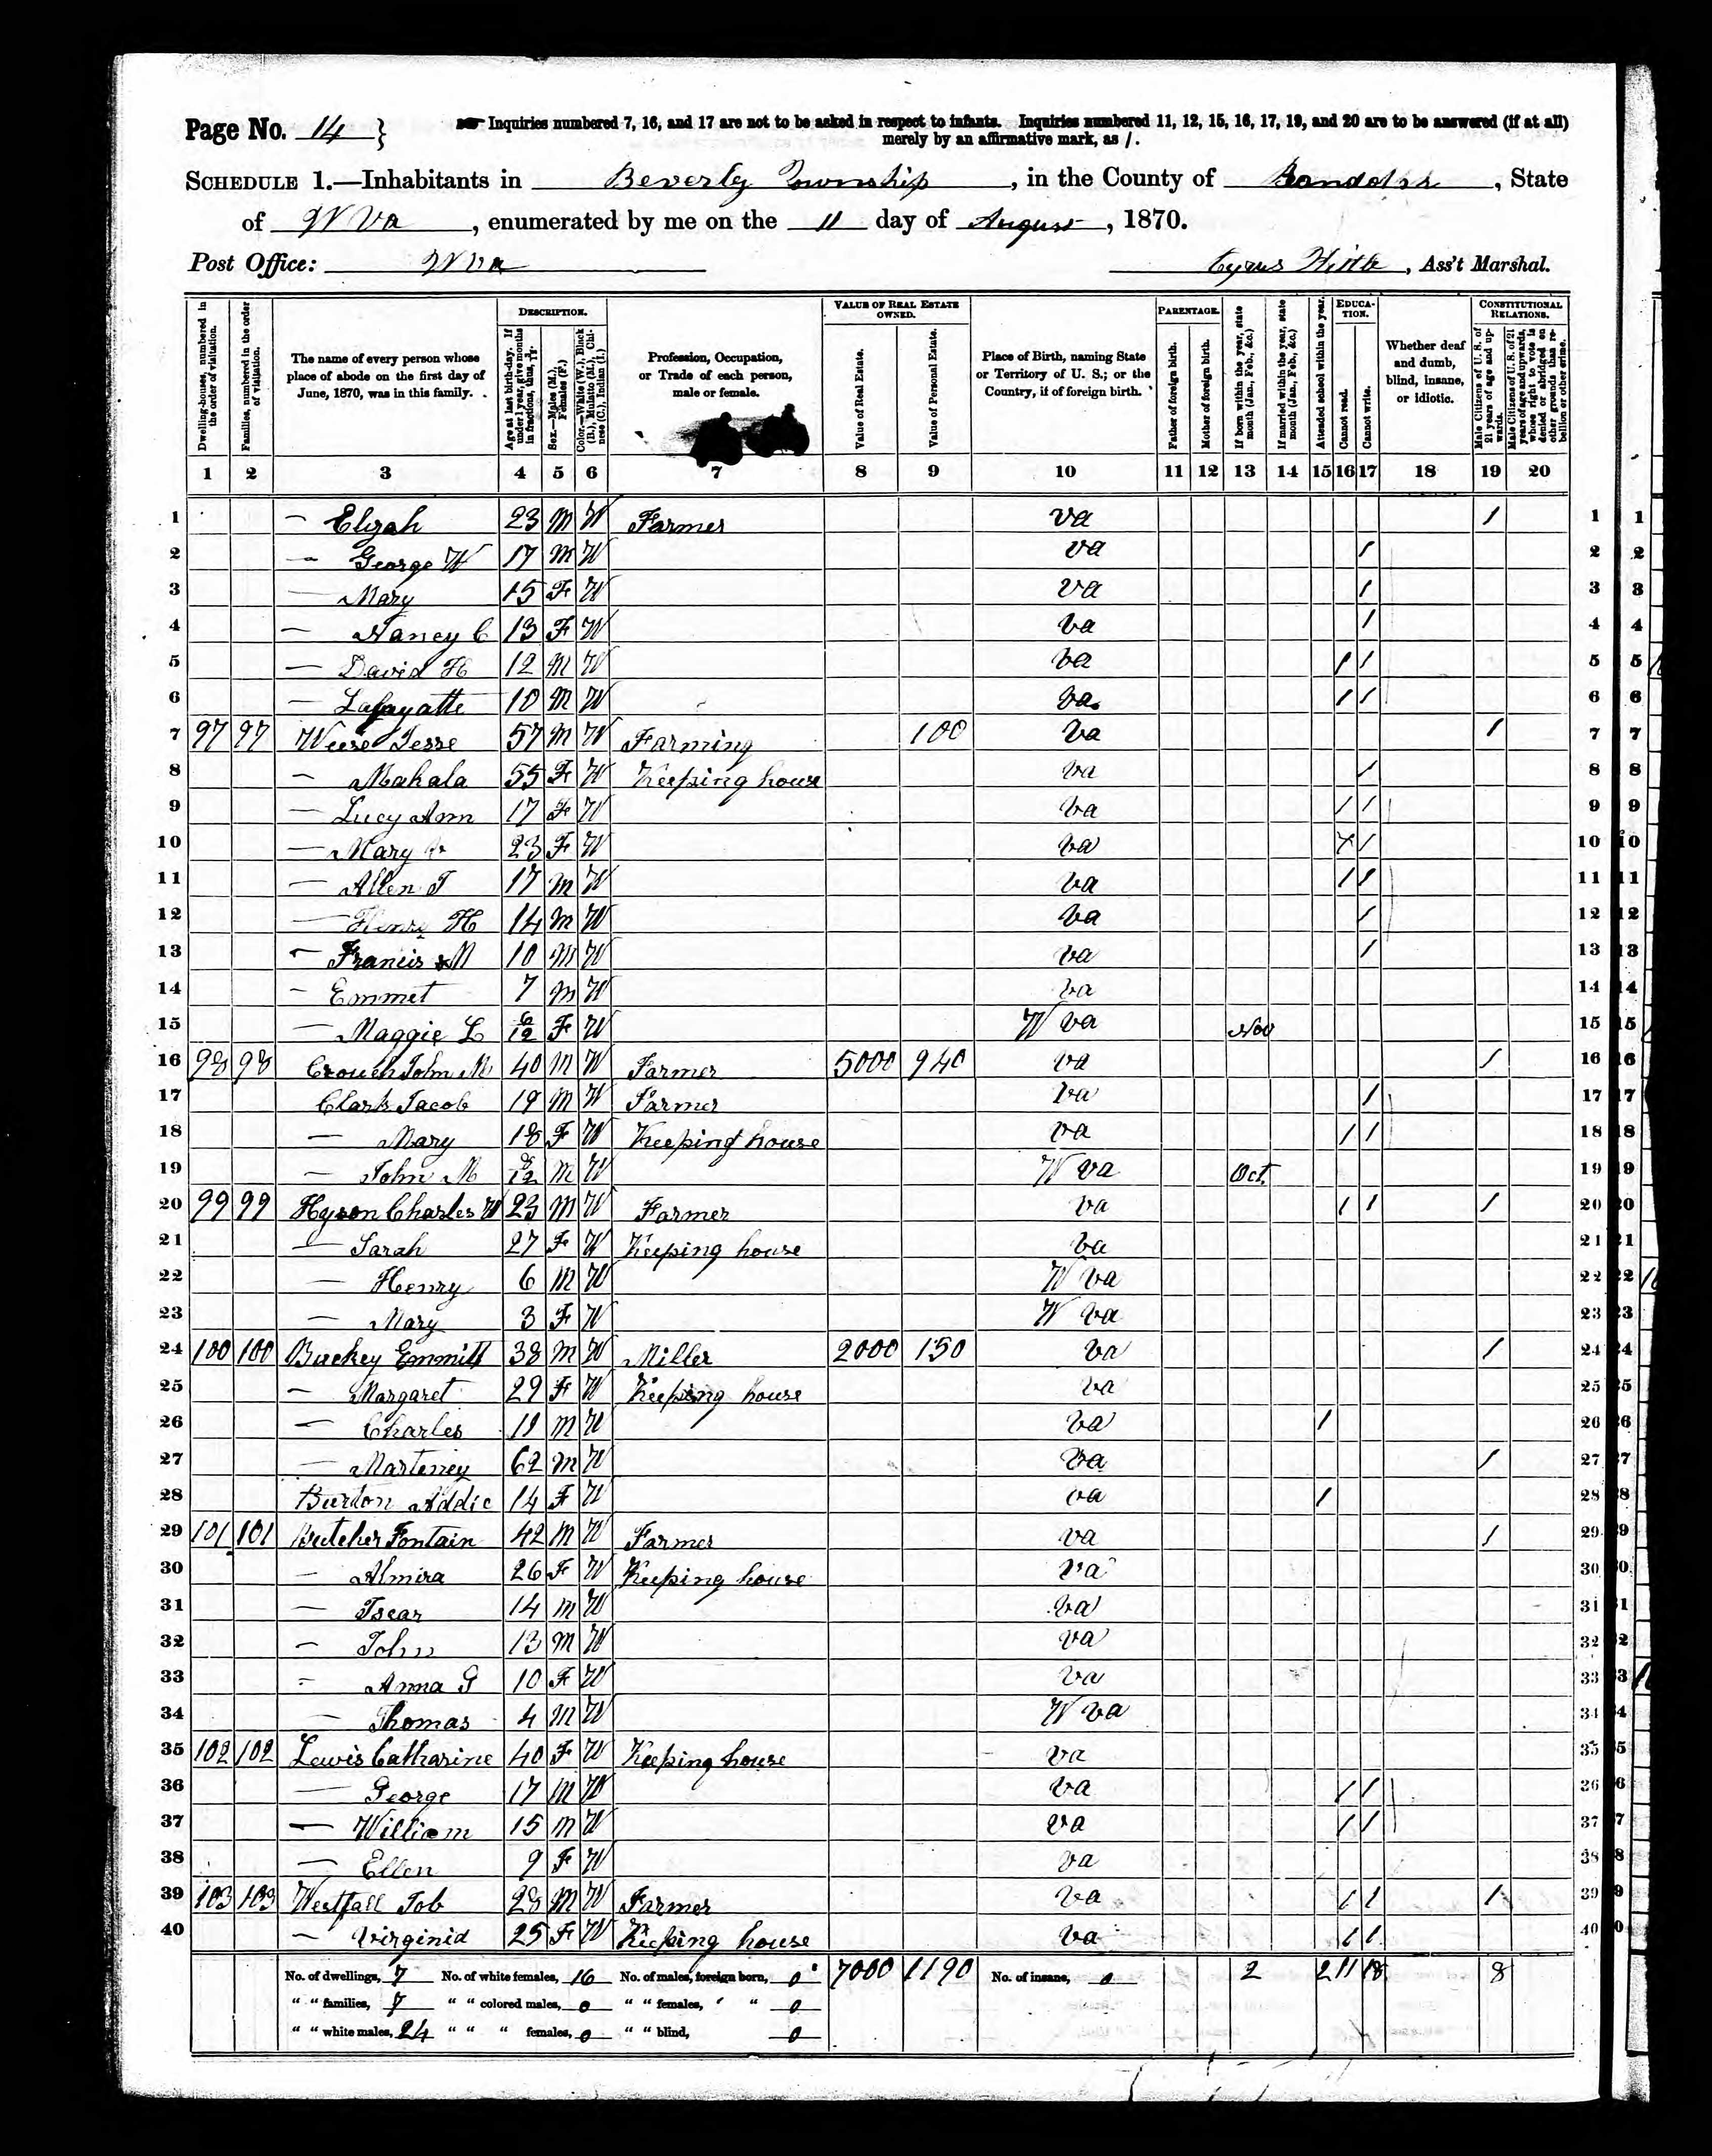 Page No. 14 } Inquiries numbered 7, 16, and 17 are not to be asked in respect to infants. Inquiries numbered 11, 12, 15, 16, 17, 19, and 20 are to be answered (if at all)
merely by an affirmative mark, as /.
SCHEDULE 1.—Inhabitants in Beverly Township, in the County of Randolph, State
of W Va, enumerated by me on the 11 day of August, 1870.
Post Office: W Va Cyrus, Ass't Marshal.
Dwelling-houses, numbered in the order of visitation.
Families, numbered in the order of visitation.
The name of every person whose place of abode on the first day of June, 1870, was in this family.
DESCRIPTION.
Age at last birth-day. If under 1 year, give months in fractions, thus, 3/12.
Sex.—Males (M.), Females (F.)
Color.—White (W.), Black (B.), Mulatto (M.), Chinese (C.), Indian (I.)
Profession, Occupation, or Trade of each person, male or female.
VALUE OF REAL ESTATE OWNED.
Value of Real Estate.
Value of Personal Estate.
Place of Birth, naming State or Territory of U. S.; or the Country, if of foreign birth.
PARENTAGE.
Father of foreign birth.
Mother of foreign birth.
If born within the year, state month (Jan., Feb., &c.)
If married within the year, state month (Jan., Feb., &c.)
Attended school within the year.
EDUCATION.
Cannot read.
Cannot write.
Whether deaf and dumb, blind, insane, or idiotic.
CONSTITUTIONAL RELATIONS.
Male Citizens of U. S. of 21 years of age and upwards.
Male Citizens of U. S. of 21 years of age and upwards, whose right to vote is denied or abridged on other grounds than rebellion or other crime.
1 2 3 4 5 6 7 8 9 10 11 12 13 14 15 16 17 18 19 20
1 — Elijah 23 M W Farmer Va / 1
2 — George W 17 M W Va / 2
3 — Mary 15 F W Va / 3
4 — Nancy C 13 F W Va / 4
5 — David H 12 M W Va / / 5
6 — Lafayatte 10 M W Va. / / 6
7 97 97 Weese Jesse 57 M W Farming 100 Va / 7
8 — Mahala 55 F W Keeping house Va / 8
9 — Lucy Ann 17 F W Va / / 9
10 — Mary 23 F W Va / / 10
11 — Allen T 17 M W Va / / 11
12 — Henry H 14 M W Va / 12
13 — Francis M 10 M W Va / 13
14 — Emmet 7 M W Va 14
15 — Maggie L 6/12 F W W Va Nov 15
16 98 98 Crouch John M 40 M W Farmer 5000 940 Va / 16
17 Clark Jacob 19 M W Farmer Va / 17
18 — Mary 18 F W Keeping house Va / / 18
19 — John M 8/12 M W W Va Oct. 19
20 99 99 Hyson Charles W 23 M W Farmer Va / / / 20
21 — Sarah 27 F W Keeping house Va 21
22 — Henry 6 M W W Va 22
23 — Mary 3 F W W Va 23
24 100 100 Buckey Emmitt 38 M W Miller 2000 150 Va / 24
25 — Margaret 29 F W Keeping house Va 25
26 — Charles 11 M W Va / 26
27 — Marteney 62 M W Va / 27
28 Burton Addie 14 F W Va / 28
29 101 101 Butcher Fontain 42 M W Farmer Va / 29
30 — Almira 26 F W Keeping house Va 30
31 — Iscar 14 M W Va 31
32 — John 13 M W Va 32
33 — Anna G 10 F W Va 33
34 — Thomas 4 M W W Va 34
35 102 102 Lewis Catharine 40 F W Keeping house Va 35
36 — George 17 M W Va / / 36
37 — William 15 M W Va / / 37
38 — Ellen 9 F W Va 38
39 103 103 Westfall Job 28 M W Farmer Va / / / 39
40 — Virginia 25 F W Keeping house Va / / 40
No. of dwellings, 7 No. of white females, 16 No. of males, foreign born, 0 7000 1190 No. of insane, 0 2 2 11 18 8
" " families, 7 " " colored males, 0 " " females, " " 0
" " white males, 24 " " " females, 0 " " blind, 0